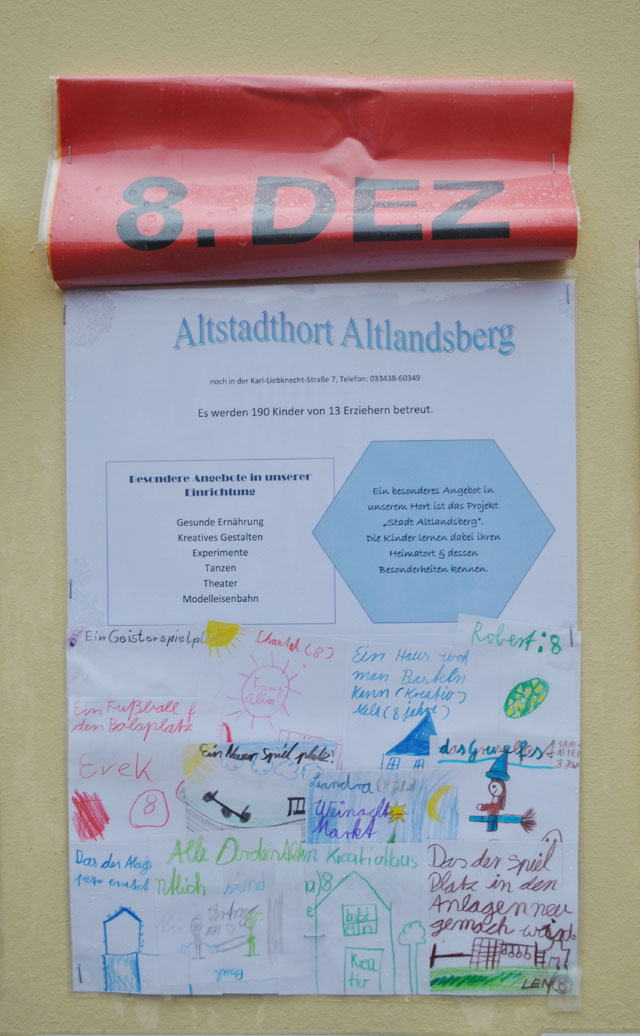 8. DEZ
Altstadthort Altlandsberg
noch in der Karl-Liebknecht-Straße 7, Telefon: 033438-60349
Es werden 190 Kinder von 13 Erziehern betreut.
Besondere Angebote in unserer
Einrichtung
Gesunde Ernährung
Kreatives Gestalten
Experimente
Tanzen
Theater
Modelleisenbahn
Ein besonderes Angebot in
unserem Hort ist das Projekt
„Stadt Altlandsberg“.
Die Kinder lernen dabei ihren
Heimatort & dessen
Besonderheiten kennen.
Ein Geisterspielpl
Chantal (8)
Ein Haus wo
man Basteln
Kann (Kreativ)
(8 jahre)
Robert: 8
Ein Fußball f
den Bolsplatz
Erek
8
Ein Neuer Spielplatz!
das Gruselfest
Leandra
Weinacht
Markt
Alle
sind
Kreativbus
a) 8
Krea
tiv
Das der Spiel
Platz in den
Anlagen neu
gemach wird
LEN 8